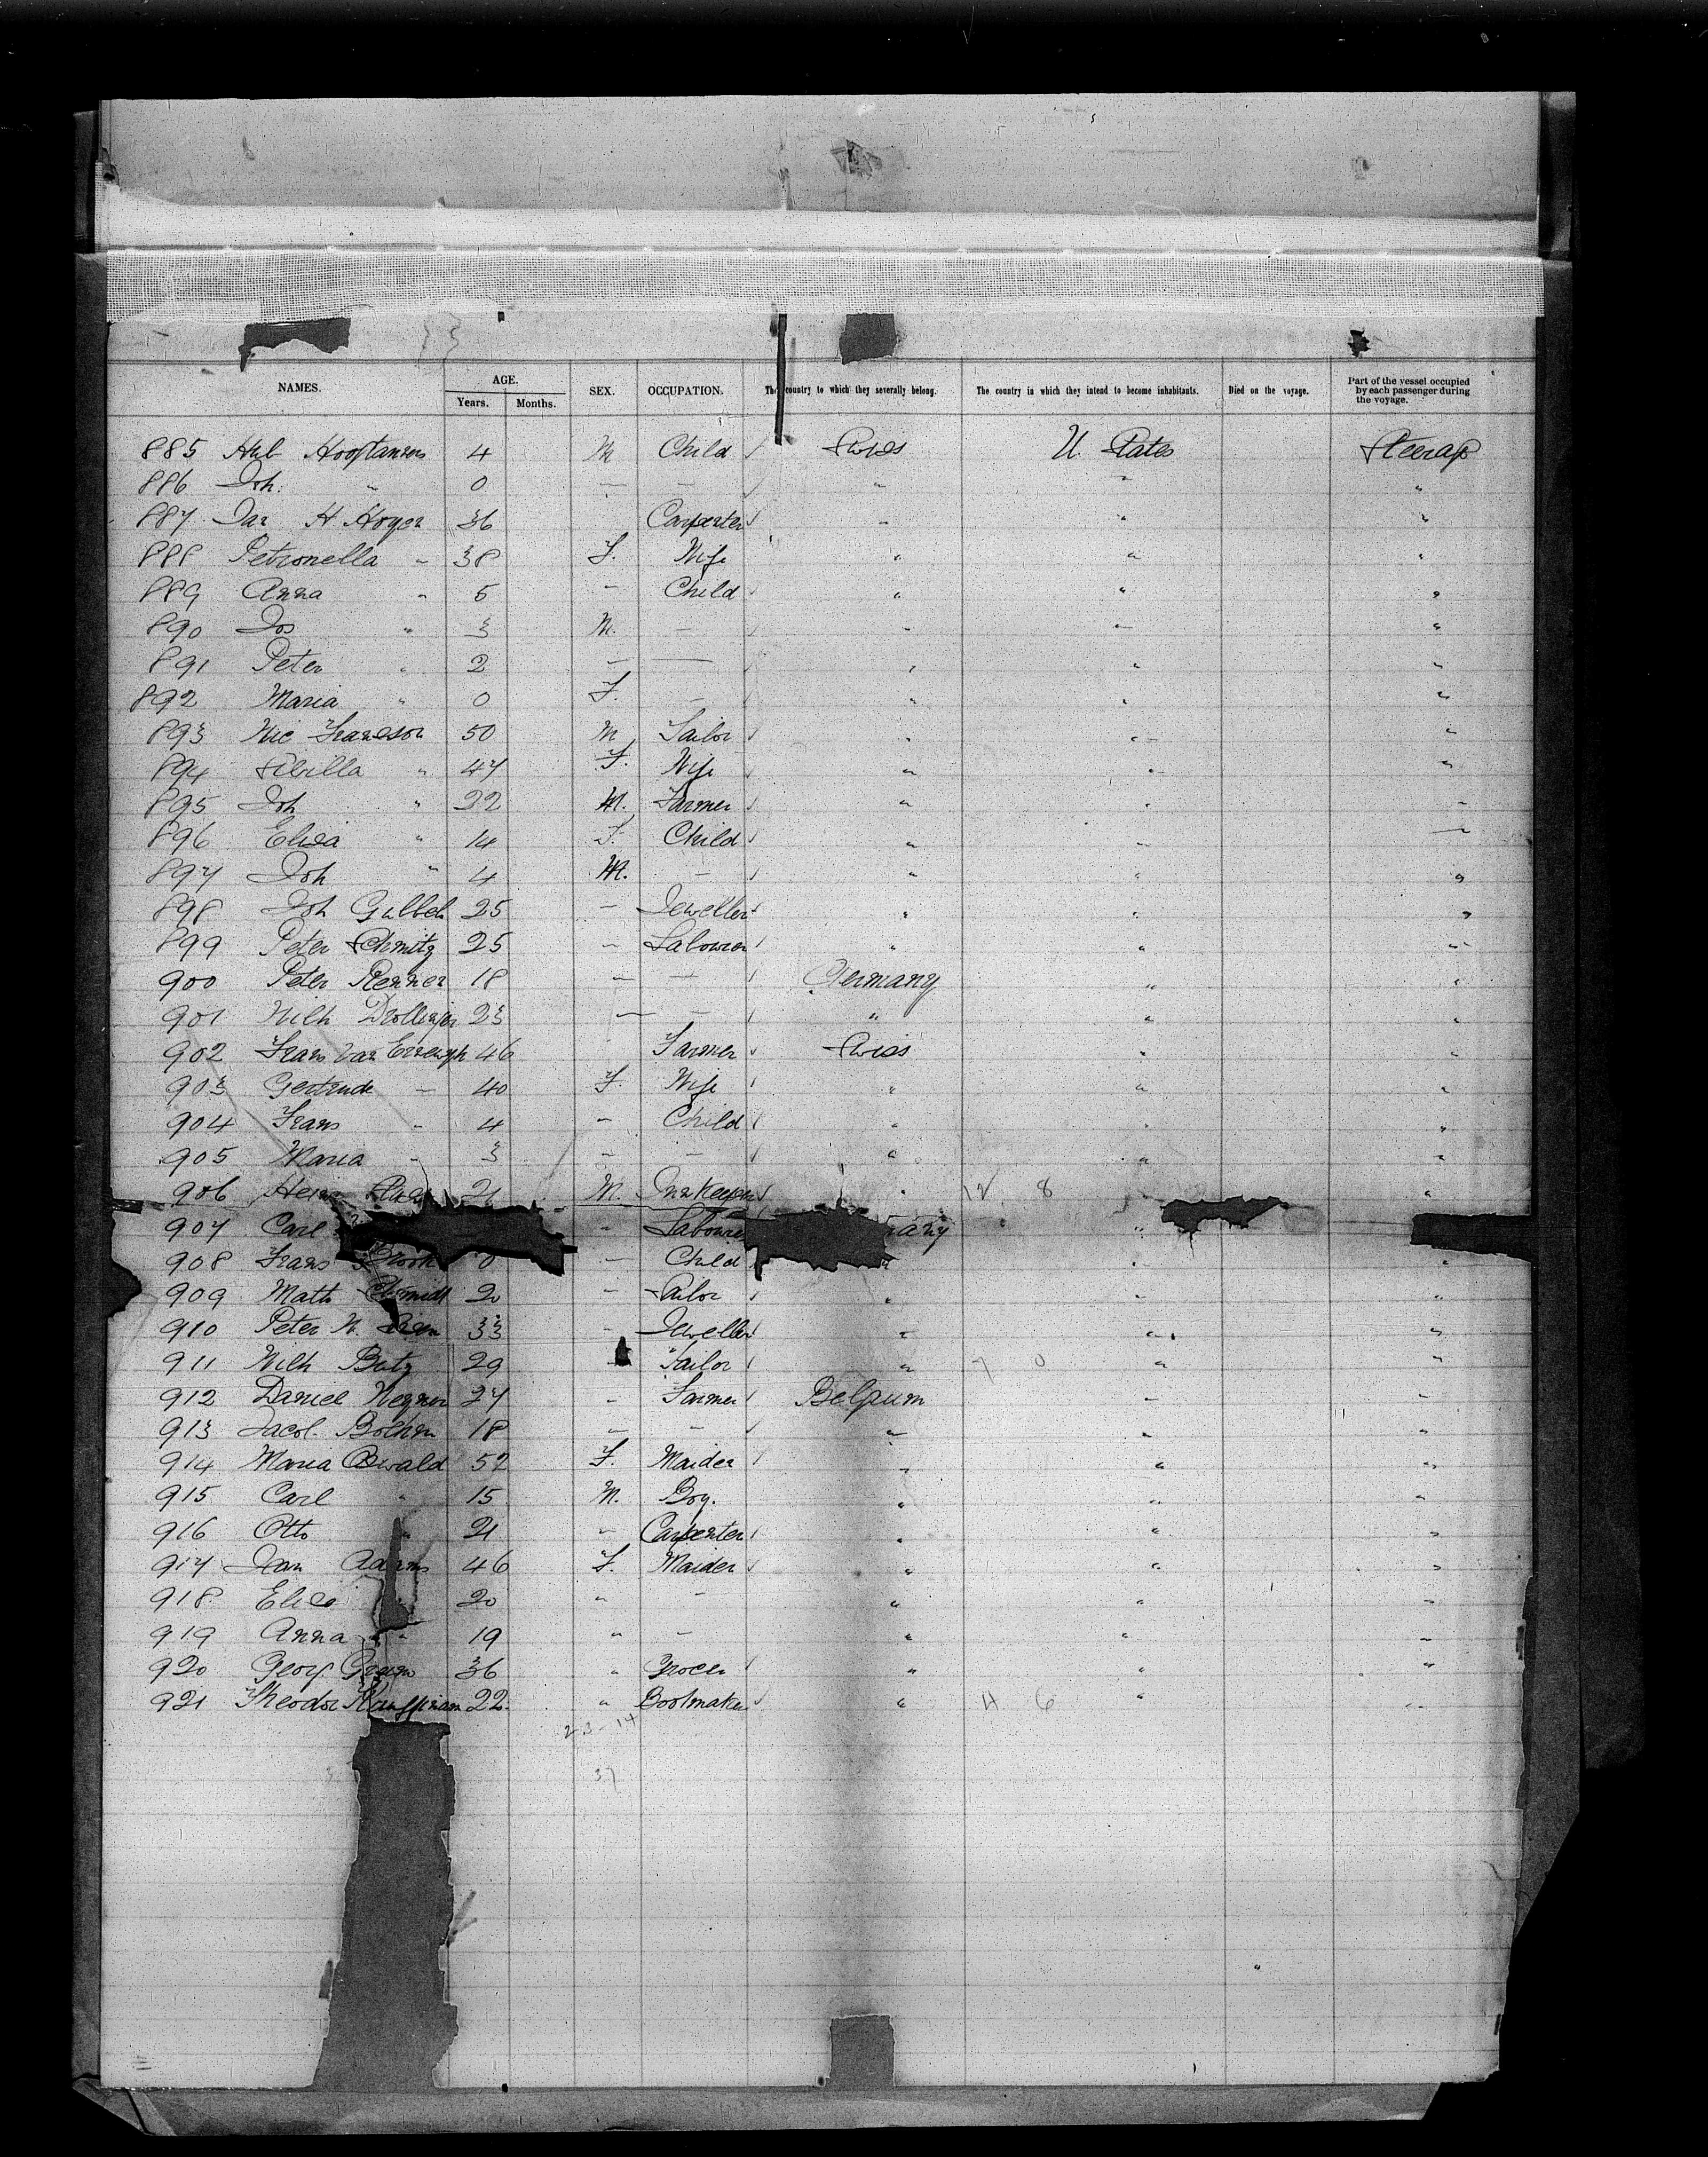 NAMES. AGE. Years. Months. SEX. OCCUPATION. The country to which they severally belong. The country in which they intend to become inhabitants. Died on the voyage. Part of the vessel occupied by each passenger during the voyage.
885 Hub 4 M Child Swiss U. States Steerage
886 Joh. " 0 — — " " "
887 Jan H Hoyer 36 Carpenter " " "
888 Petronella " 38 F. Wife " " "
889 Anna " 5 — Child " " "
890 Jos " 3 M. — " " "
891 Peter " 2 — — " " "
892 Maria " 0 F. — " " "
893 Nic 50 M Tailor " " "
894 Sibilla " 47 F. Wife " " "
895 Joh " 22 M. Farmer " " "
896 Elisa " 14 F. Child " " —
897 Joh " 4 M. — " " "
898 Joh 25 — Jeweller " " "
899 Peter Schmitz 25 — Labourer " " "
900 Peter Renner 18 — — Germany " "
901 Wilh Drollinger 23 — — " " "
902 Frans van 46 - Farmer Swiss " "
903 Gertrude — 40 F. Wife " " "
904 Frans - 4 — Child " " "
905 Maria - 3 — — " " "
906 21 M. Innkeeper " 12 8 " "
907 Carl - Laboure any "
908 Frans 0 — Child " " "
909 Math Schmidt 20 - Sailor " " "
910 Peter W. 33 - Jeweller " " "
911 Wilh Butz 29 Tailor " 7 0 " "
912 Daniel 27 - Farmer Belgium — "
913 Jacob 18 — — " " "
914 Maria Oswald 52 F. Maiden " " "
915 Carl " 15 M. Boy. " " "
916 Otto " 21 - Carpenter " " "
917 Jan Adams 46 F. Maiden " " "
918 Elisa 20 " — " " "
919 Anna " 19 " — " " "
920 Georg 36 " Grocer " " "
921 Theodor Kauffman 22. " Bootmaker " 4 6 " "
23-14
37